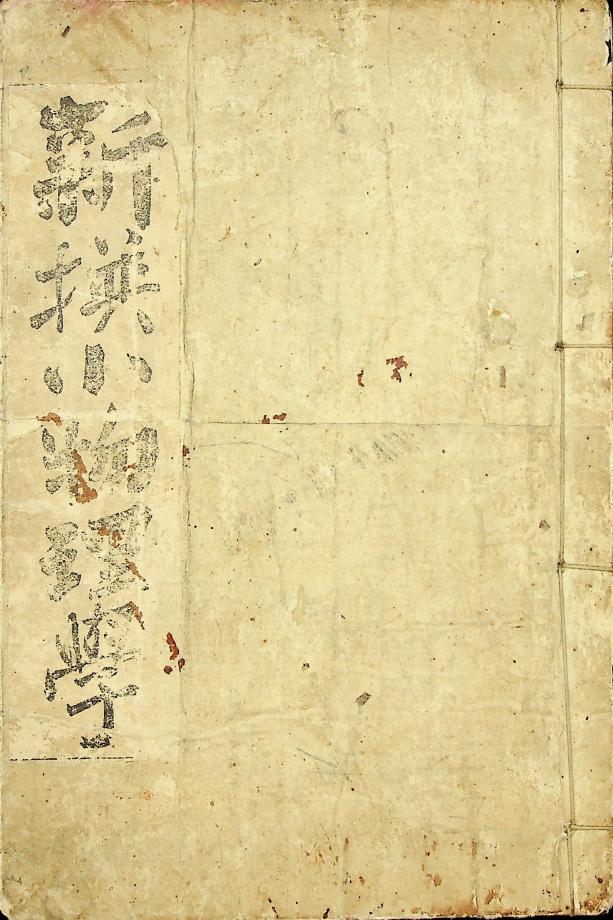 新撰小物理學